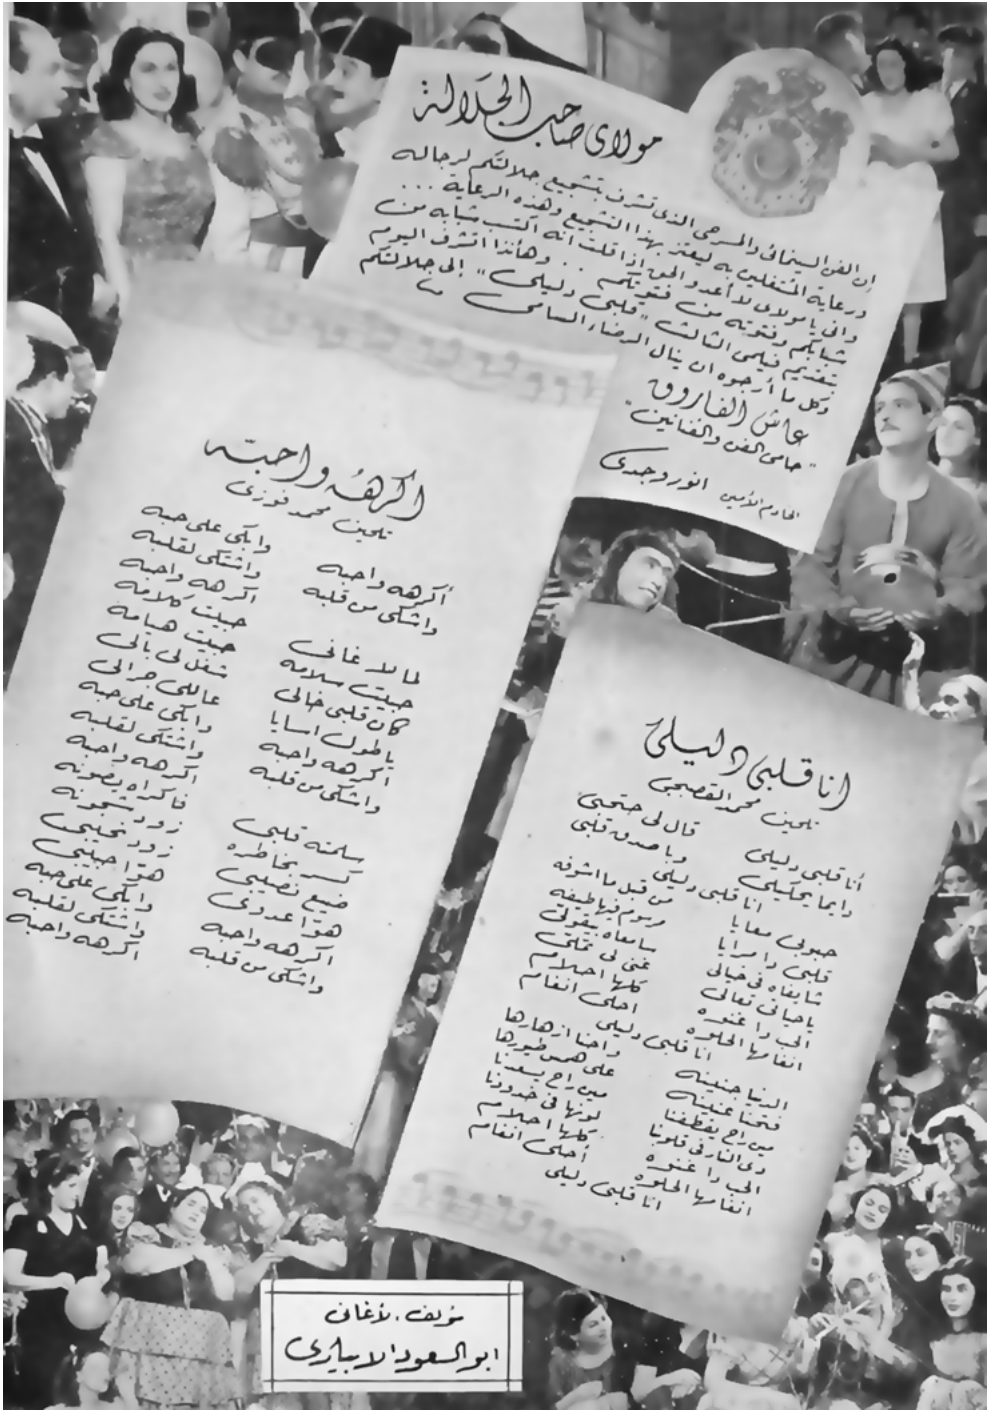 مولاى صاحب الجلالة
إن الفن السينمائى والمسرحى الذى تشرف بتشجيع جلالتكم لرجاله
ورعاية المشتغلين به ليعتز بهذا التشجيع وهذه الرعاية ...
وانى يا مولاى لا أعدو الحق إذا قلت انه اكتسب شبابه من
شبابكم وفتوته من فتوتكم .. وهأنذا اتشرف اليوم
بتقديم فيلمى الثالث "قلبى دليلى" إلى جلالتكم
وكل ما أرجوه ان ينال الرضاء السامى
عاش الفاروق
"حامى الفن والفنانين"
الخادم الأمين انور وجدى
اكرهه واحبه
تلحين محمد فوزى
أكرهه واحبه وابكى على حبه
واشكى من قلبه واشتكى لقلبه
اكرهه واحبه
لما لاغانى حبيت كلامه
حبيت سلامه حبيت هيامه
كان قلبى خالى شغل لى بالى
ياطول اسايا عاللى جرالى
اكرهه واحبه وابكى على حبه
واشكى من قلبه واشتكى لقلبه
اكرهه واحبه
سلمته قلبى فاكراه يصونه
كسر بخاطره زود شجونه
ضيع نصيبى زود نحيبى
هوا عدوى هوا حبيبى
اكرهه واحبه وابكى على حبه
واشكى من قلبه واشتكى لقلبه
اكرهه واحبه
انا قلبى دليلى
تلحين محمد القصبجى
أنا قلبى دليلى قال لى حتحبى
دايما يحكيلى وباصدق قلبى
انا قلبى دليلى
حبوبى معايا من قبل ما اشوفه
قلبى دا مرايا مرسوم فيها طيفه
شايفاه فى خيالى سامعاه بيقولى
ياحياتى تعالى غنى لى
الحب دا غنوه كلها احلام
انغامها الحلوه احلى انغام
انا قلبى دليلى
الدنيا جنينه واحنا ازهارها
فتحنا عنينه على همس طيورها
مين راح يقطفنا مين راح يسعدنا
دى النار فى قلوبنا لونها فى خدودنا
الحب دا غنوه كلها احلام
انغامها الحلوه أحلى انغام
انا قلبى دليلى
مؤلف الأغانى
ابو السعود الابيارى